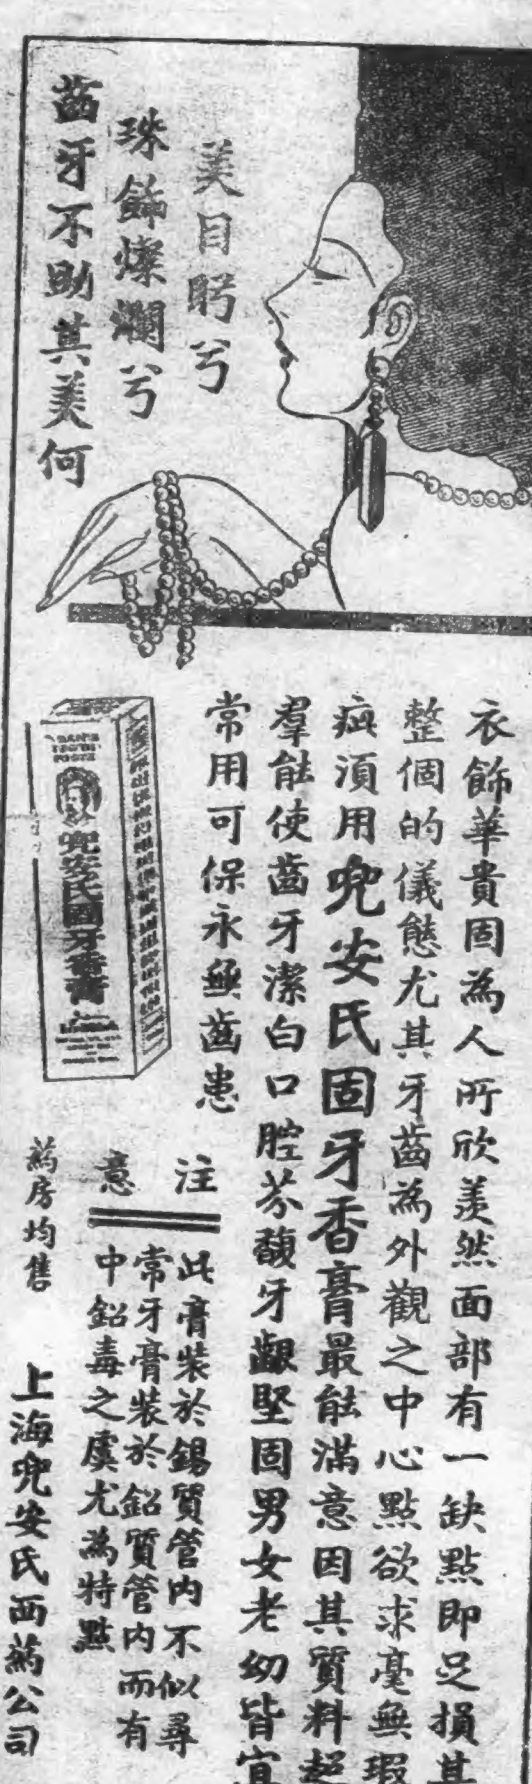 美目盻兮
珠飾燦爛兮
齒牙不助其美何
衣飾華貴固為人所欣羨然面部有一缺點即足損其
整個的儀態尤其牙齒為外觀之中心點欲求毫無瑕
疵須用兜安氏固牙香膏最能滿意因其質料超
羣能使齒牙潔白口腔芬馥牙齦堅固男女老幼皆宜
常用可保永無齒患
兜安氏固牙香膏
注意
此膏裝於錫質管內不似尋
常牙膏裝於鉛質管內而有
中鉛毒之虞尤為特點
藥房均售
上海兜安氏西藥公司